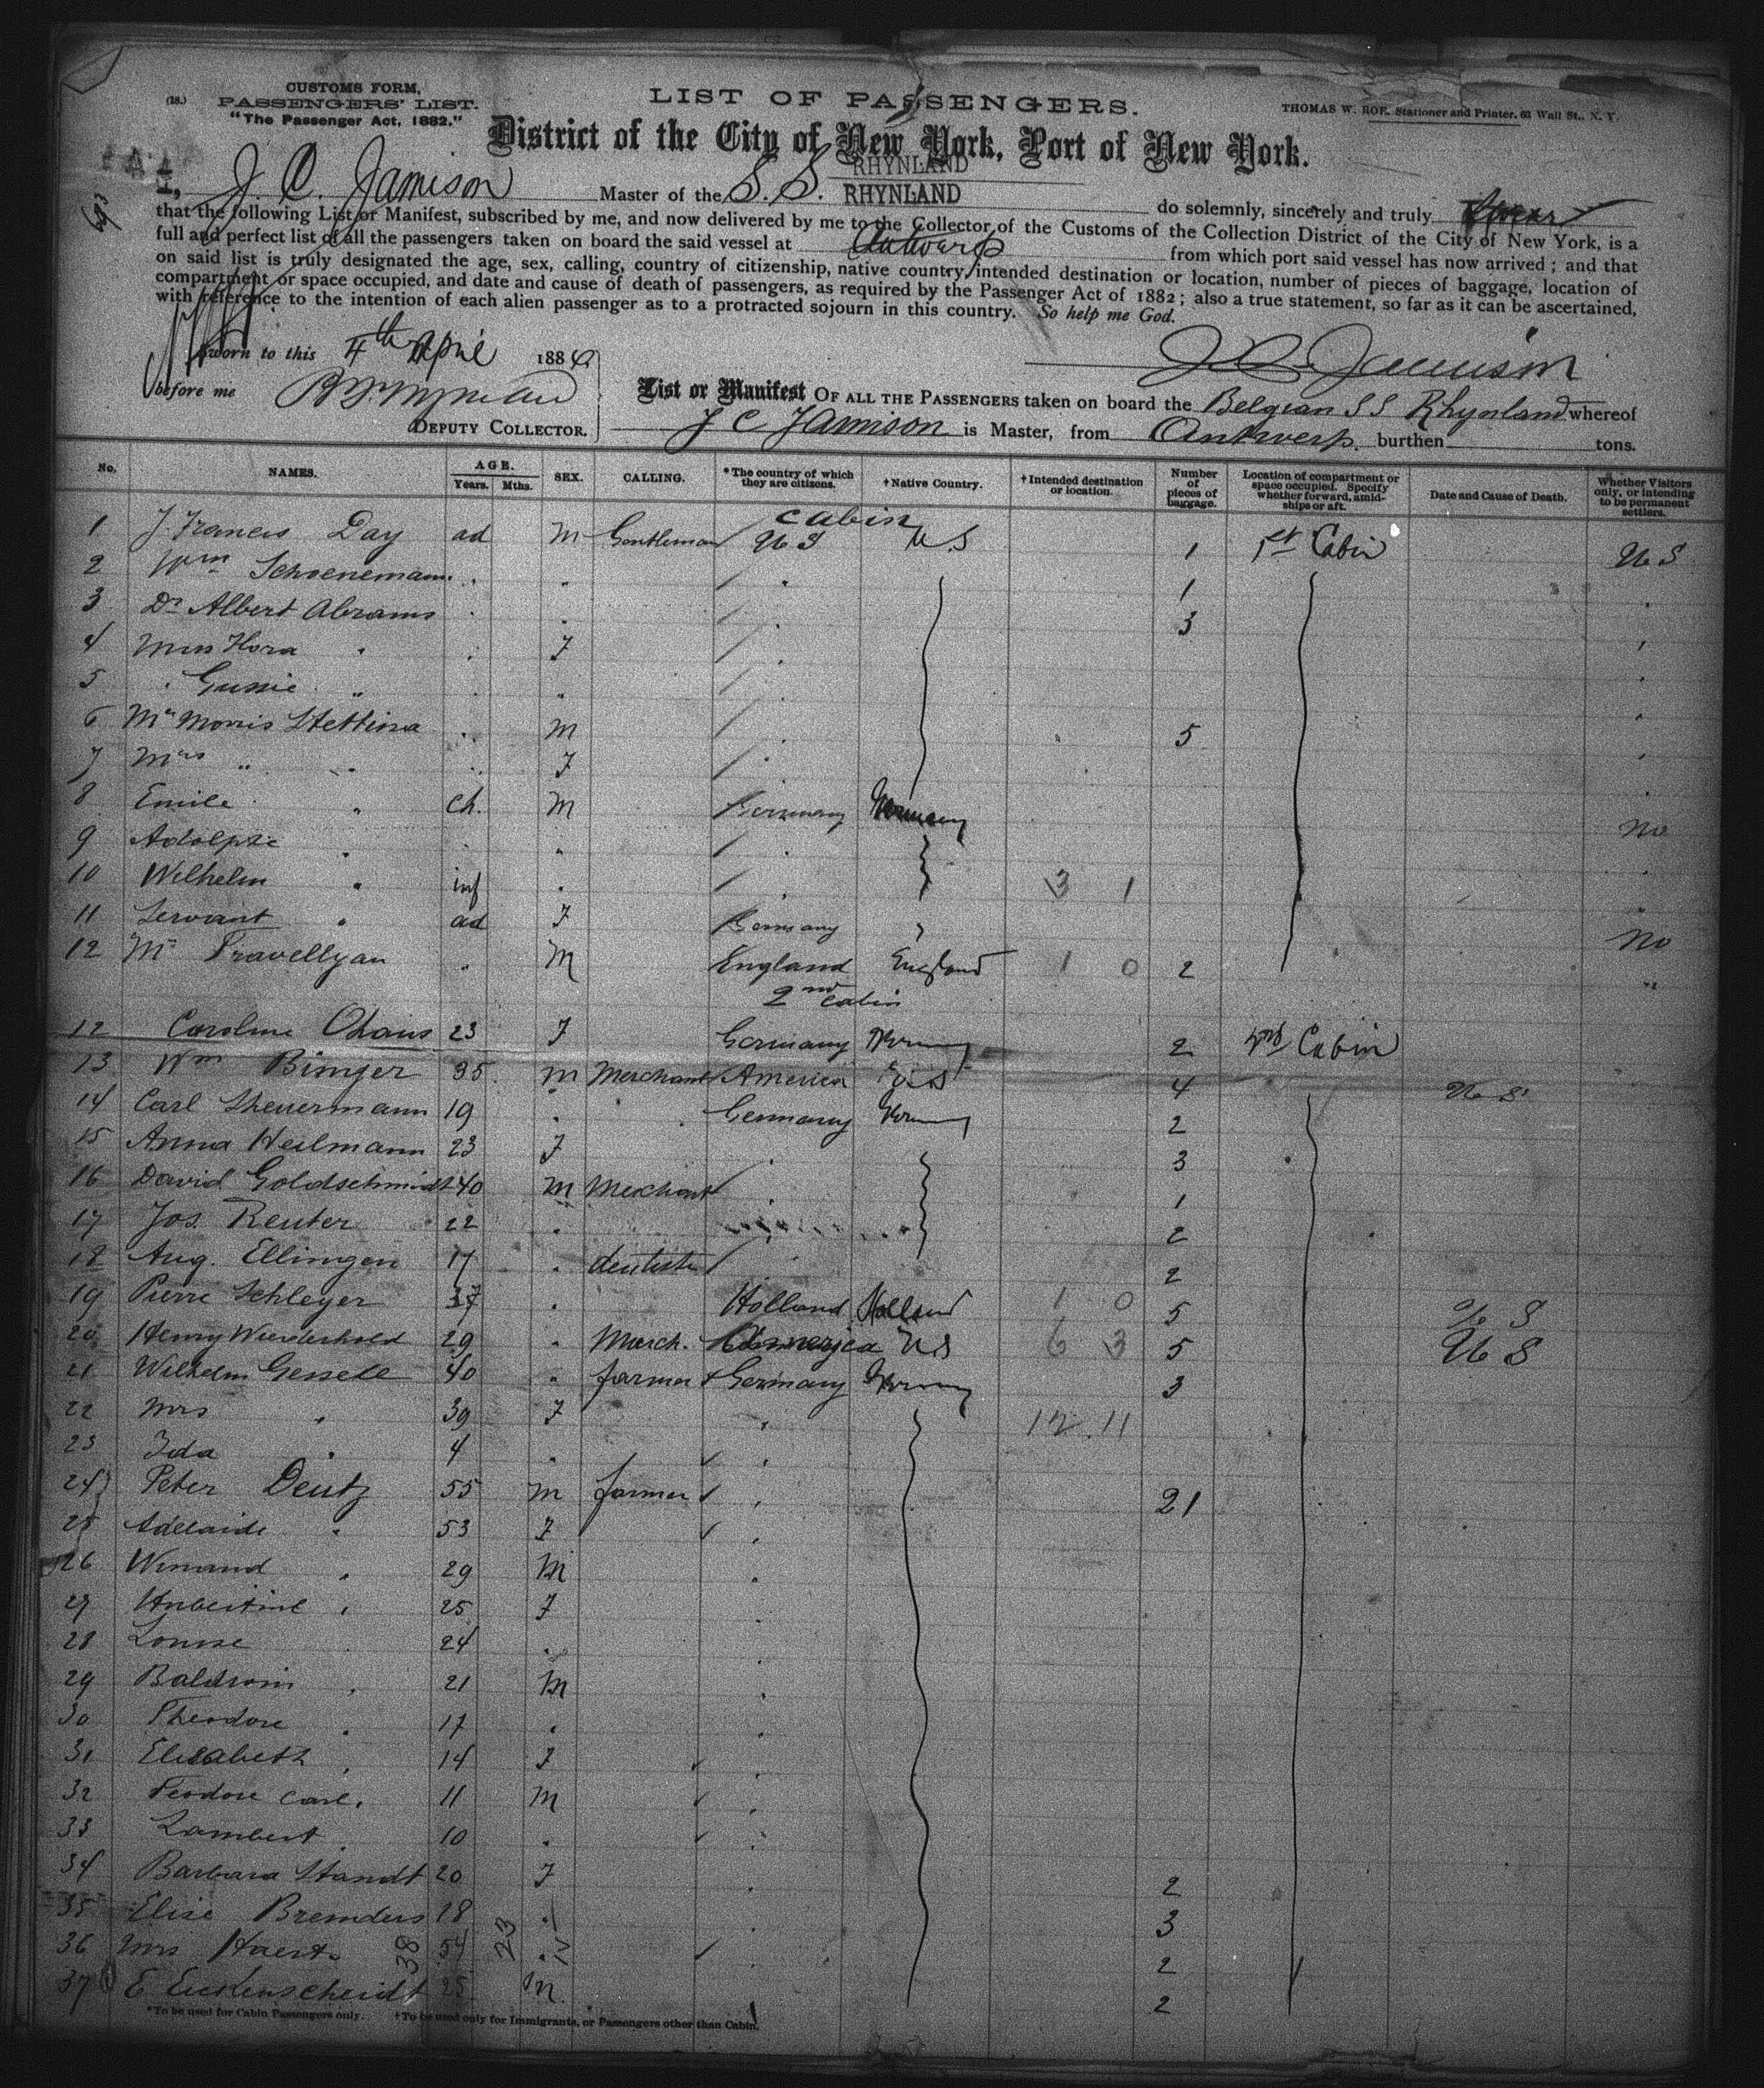 (18.)
CUSTOMS FORM,
PASSENGERS' LIST.
"The Passenger Act, 1882."
LIST OF PASSENGERS.
THOMAS W. ROE, Stationer and Printer, 63 Wall St., N. Y.
District of the City of New York, Port of New York.
RHYNLAND
I, J. C. Jamison Master of the S. S. RHYNLAND do solemnly, sincerely and truly swear
that the following List or Manifest, subscribed by me, and now delivered by me to the Collector of the Customs of the Collection District of the City of New York, is a
full and perfect list of all the passengers taken on board the said vessel at Antwerp from which port said vessel has now arrived; and that
on said list is truly designated the age, sex, calling, country of citizenship, native country, intended destination or location, number of pieces of baggage, location of
compartment or space occupied, and date and cause of death of passengers, as required by the Passenger Act of 1882; also a true statement, so far as it can be ascertained,
with reference to the intention of each alien passenger as to a protracted sojourn in this country. So help me God.
Sworn to this 4th April 188
J C Jamison
before me
DEPUTY COLLECTOR.
List or Manifest OF ALL THE PASSENGERS taken on board the Belgian S S Rhynland whereof
J C Jamison is Master, from Antwerp. burthen tons.
No. NAMES. AGE. Years. Mths. SEX. CALLING. *The country of which they are citizens. †Native Country. †Intended destination or location. Number of pieces of baggage. Location of compartment or space occupied. Specify whether forward, amidships or aft. Date and Cause of Death. Whether Visitors only, or intending to be permanent settlers.
cabin
1 J. Francis Day ad M Gentleman U S U.S 1 1st Cabin U S
2 Wm Schoenemann " " " 1
3 Dr Albert Abrams " " " 3
4 Miss Flora " " F "
5 " Gussie " " " "
6 Mr Morris Stettina " M " 5
7 Mrs " " " F "
8 Emile " ch. M Germany Germany no
9 Adolphe " " " "
10 Wilhelm " inf " " 3 1
11 Servant " ad F Germany " no
12 Mr Travellyan " M England England 1 0 2 "
2nd cabin
12 Caroline Ohaus 23 F Germany Germany 2 2nd Cabin
13 Wm Binger 35 M Merchant America U S 4 U S
14 Carl Sheuermann 19 " " Germany Germany 2
15 Anna Heilmann 23 F " 3
16 David Goldschmidt 40 M Merchant " 1
17 Jos. Reuter 22 " 2
18 Aug. Ellingen 17 " dentist " 2
19 Pierre Schleyer 37 " Holland Holland 1 0 5 U S
20 Henry Wiederhold 29 " Merch. America U S 6 3 5 U S
21 Wilhelm Gessele 40 " farmer Germany Germany 3
22 Mrs " 39 F " 12 11
23 Ida " 4 " "
24 Peter Deutz 55 M farmer " 21
25 Adelaide " 53 F "
26 Winand " 29 M "
27 Hubertine " 25 F "
28 Louise " 24 " "
29 Baldwin " 21 M "
30 Theodore " 17 " "
31 Elisabeth " 14 F "
32 Teodore Carl " 11 M "
33 Lambert " 10 " "
34 Barbara Standt 20 F " 2
35 Elise Bremders 18 " " 3
36 Mrs 54 " " 2
37 E Eickenscheidt 25 M 2
38 23
*To be used for Cabin Passengers only. †To be used only for Immigrants, or Passengers other than Cabin.